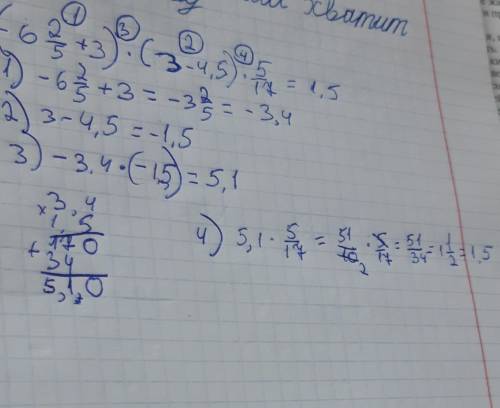 хватит
① ③ ② ④
(-6 2/5 + 3) · (3 - 4,5) · 5/17 = 1,5
1) -6 2/5 + 3 = -3 2/5 = -3,4
2) 3 - 4,5 = -1,5
3) -3,4 · (-1,5) = 5,1
× 3,4
1,5
+ 170
34
5,10
4) 5,1 · 5/17 = 51/10 2 · 5/17 = 51/34 = 1 1/2 = 1,5